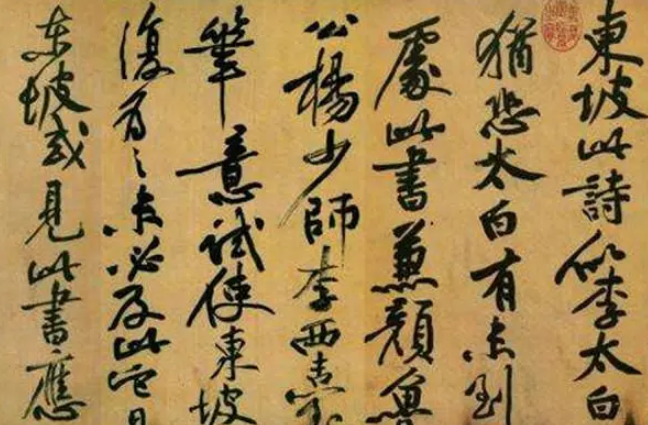 東坡此詩似李太白
猶恐太白有未到
處此書兼顏魯
公楊少師李西臺
筆意試使東坡
復為之未必及此它日
東坡或見此書應